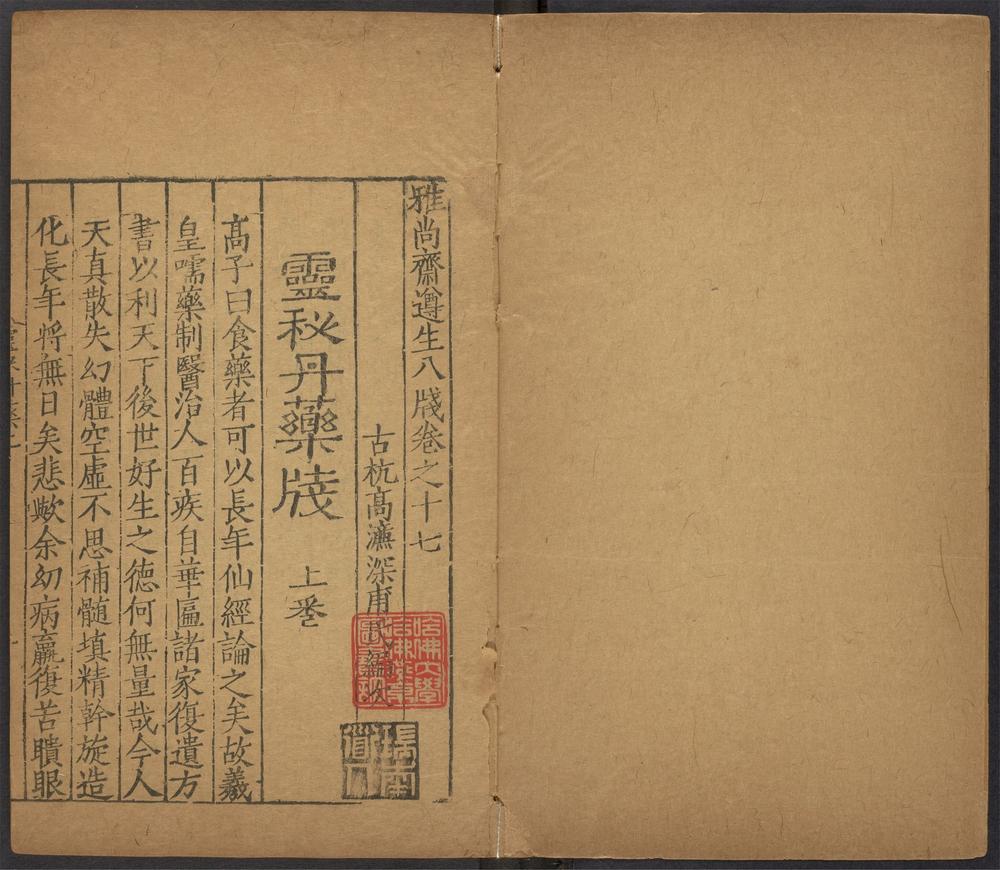 雅尚齋遵生八牋卷之十七
古杭高濂深甫氏編次
靈秘丹藥牋 上卷
高子曰食藥者可以長年仙經論之矣故羲
皇嚅藥制醫治人百疾自華匾諸家復遺方
書以利天下後世好生之德何無量哉今人
天真散失幻體空虛不思補髓填精斡旋造
化長年將無日矣悲歟余幼病羸復苦瞶眼
哈佛大學